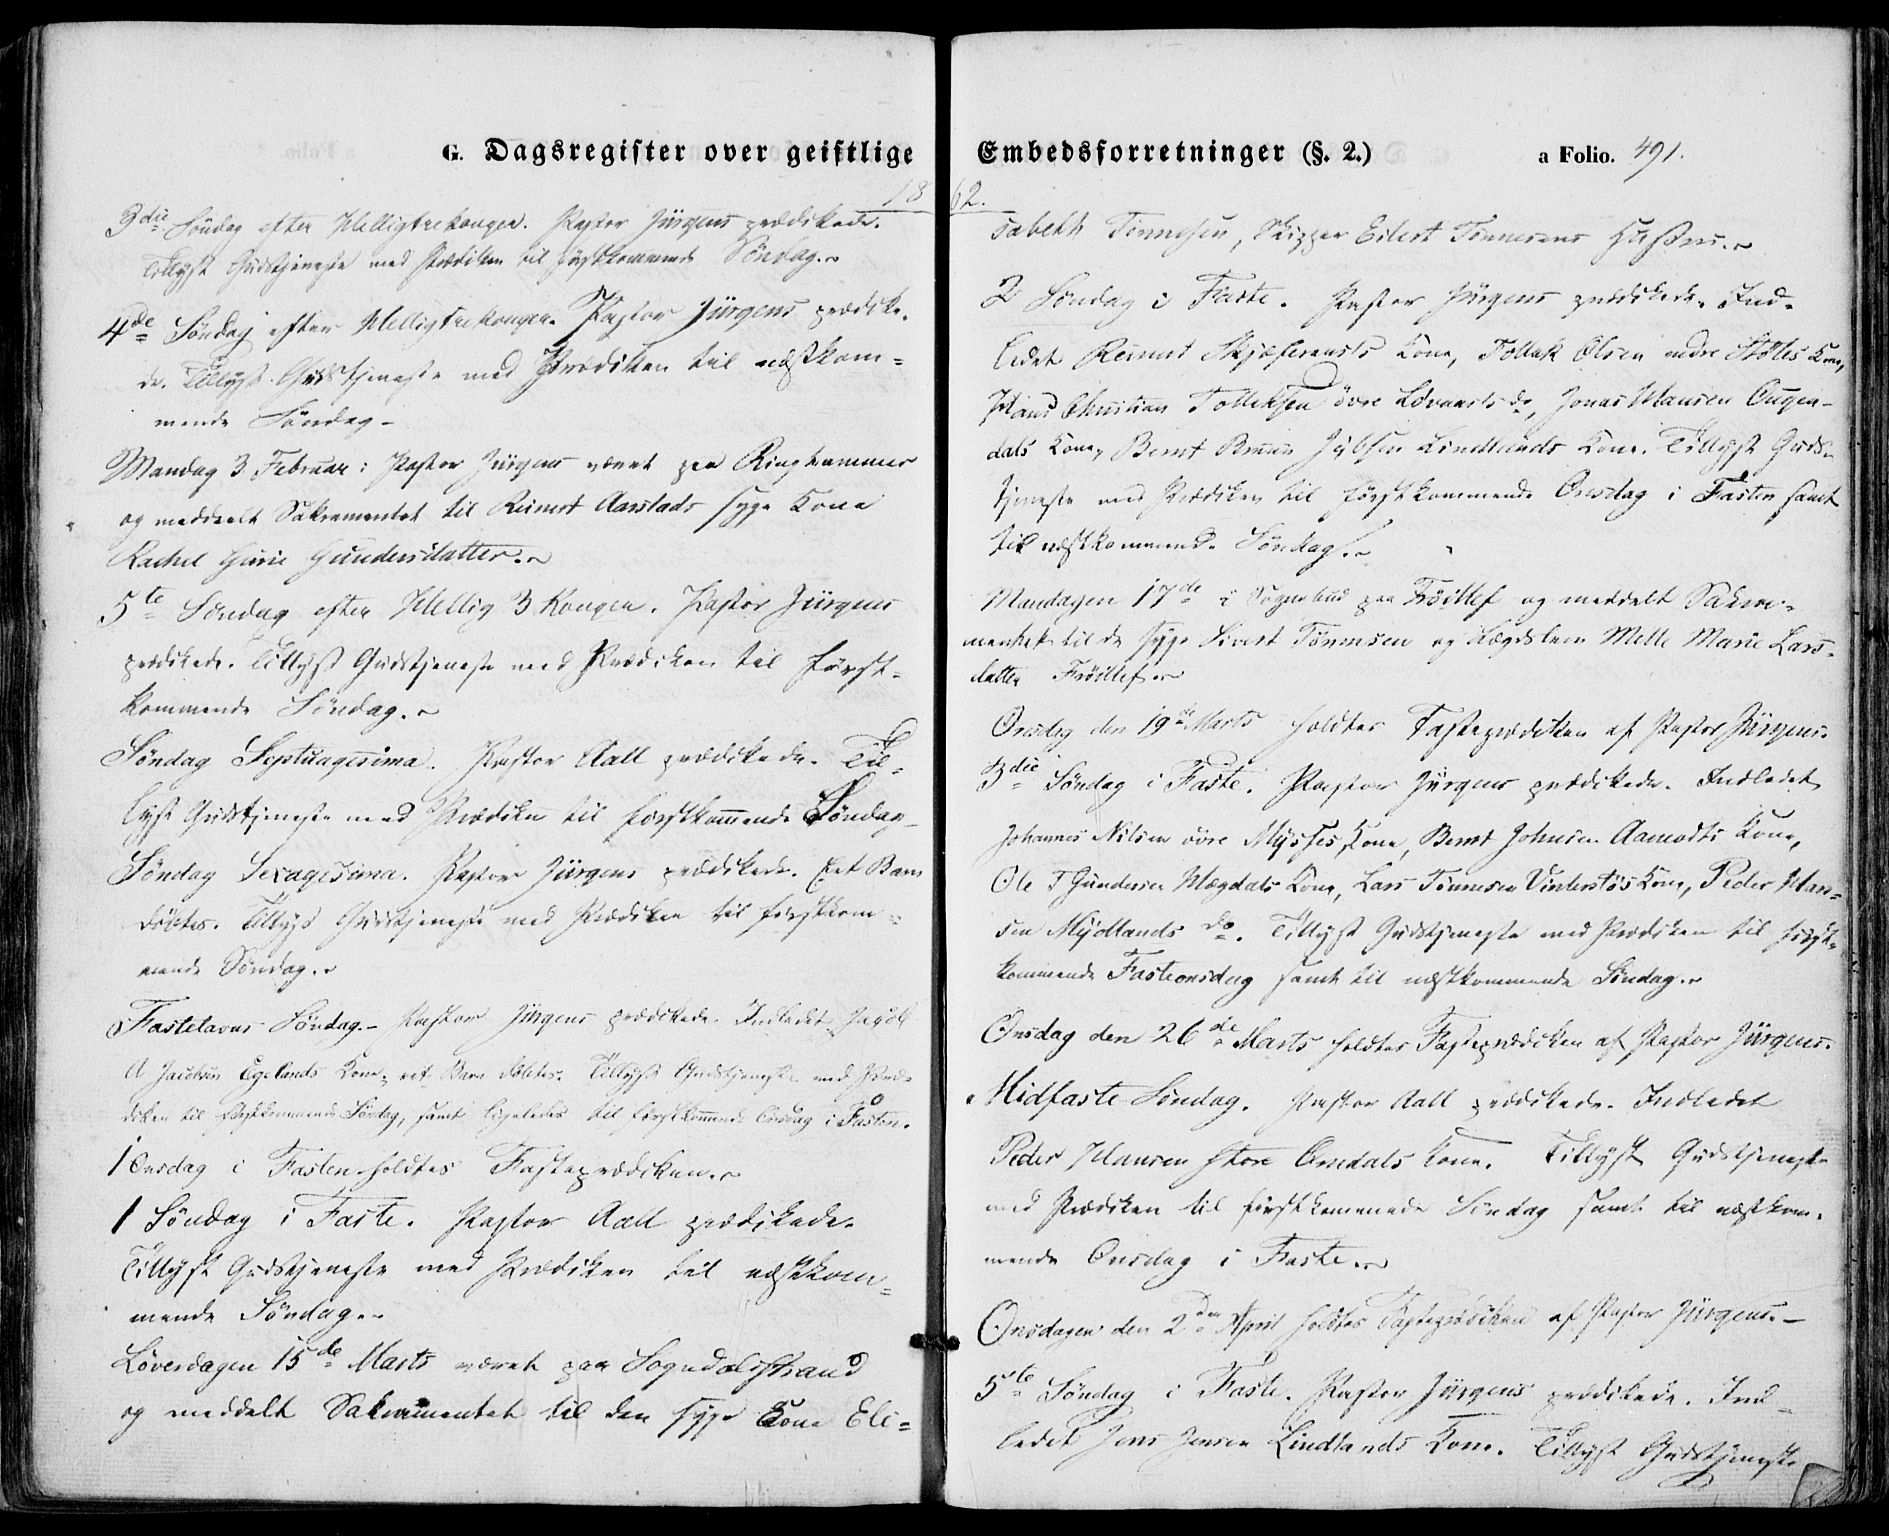 G. Dagsregister over geistlige
18
3die Søndag efter Helligtrekonger. Pastor Jürgens prædikede.
Tillyst Gudstjeneste med Prædiken til førstkommende Søndag.
4de Søndag efter Helligtrekonger. Pastor Jürgens prædike-
de. Tillyst Gudstjeneste med Prædiken til næstkom=
mende Søndag-
Mandag 3 Februar: Pastor Jürgens været paa Ringhammer
og meddeelt Sakramentet til Reinert Aarstads syge Kone
Rachel Gurie Gundersdatter.
5te Søndag efter Hellig 3 Konger. Pastor Jürgens
prædikede. Tillyst Gudstjeneste med Prædiken til først-
kommende Søndag.
Søndag Septuagesima. Pastor Aall prædikede. Til-
lyst Gudstjeneste med Prædiken til førstkommende Søndag-
Søndag Sexagesima. Pastor Jürgens prædikede. Eet Barn
døbtes. Tillyst Gudstjeneste med Prædiken til førstkom=
mende Søndag.
Fastelavns Søndag.- Pastor Jürgens prædikede. Indledet Jacob
A Jacobsen Egelands Kone, eet Barn døbtes. Tillyst Gudstjeneste med Præ-
diken til førstkommende Søndag, samt ligeledes til førstkommende Onsdag i Fasten.
1 Onsdag i Fasten holdtes Fasteprædiken.
1 Søndag i Faste. Pastor Aall prædikede.
Tillyst Gudstjeneste med Prædiken til næstkom=
mende Søndag.-
Løverdagen 15de Marts været paa Sogndalsstrand
og meddelt Sakramentet til den syge Kone Eli=
Embedsforretninger (§. 2.)
a Folio. 491.
62.
sabeth Tønnesen, Skipper Eilert Tønnesens Hustru.
2 Søndag i Faste. Pastor Jürgens prædikede. Ind-
ledet Reinert Kone, Tollak Olsen nedre Støles Kone,
Hans Christian Tolleksen øvre Lovaasls do, Jonas Hansen Ougen-
dals Kone, Bernt Lindlands Kone. Tillyst Guds-
tjeneste med Prædiken til førstkommende Onsdag i Fasten samt
til næstkommende Søndag.
Mandagen 17de i Sognebud paa Frøitlef og meddelt Sakra-
mentet til de syge Sivert Tønnesen og Lægdslem Mette Marie Lars-
datter Frøitlef.
Onsdag den 19de Marts holdtes Fasteprædiken af Pastor Jürgens.
3die Søndag i Faste. Pastor Jürgens prædikede. Indledet
Johannes Nilsen øvre Mysses Kone, Bernt Johnsen Aamodts Kone,
Ole T Gundersen Mægdals Kone, Lars Tønnesen Vinterstøs Kone, Peder Han=
sen Mydlands do. Tillyst Gudstjeneste med Prædiken til først-
kommende Fasteonsdag samt til næstkommende Søndag.
Onsdag den 26de Marts holdtes Fasteprædiken af Pastor Jürgens.
Midfaste Søndag. Pastor Aall prædikede. Indledet
Peder Hansen store Omdals Kone. Tillyst Gudstjeneste
med Prædiken til førstkommende Søndag samt til næstkom-
mende Onsdag i Faste.
Onsdagen den 2den April holdtes Fasteprædiken af Pastor Jürgens.-
5te Søndag i Faste. Pastor Jürgens prædikede. Ind-
ledet Jens Jensen Lindlands Kone. Tillyst Gudstjeneste